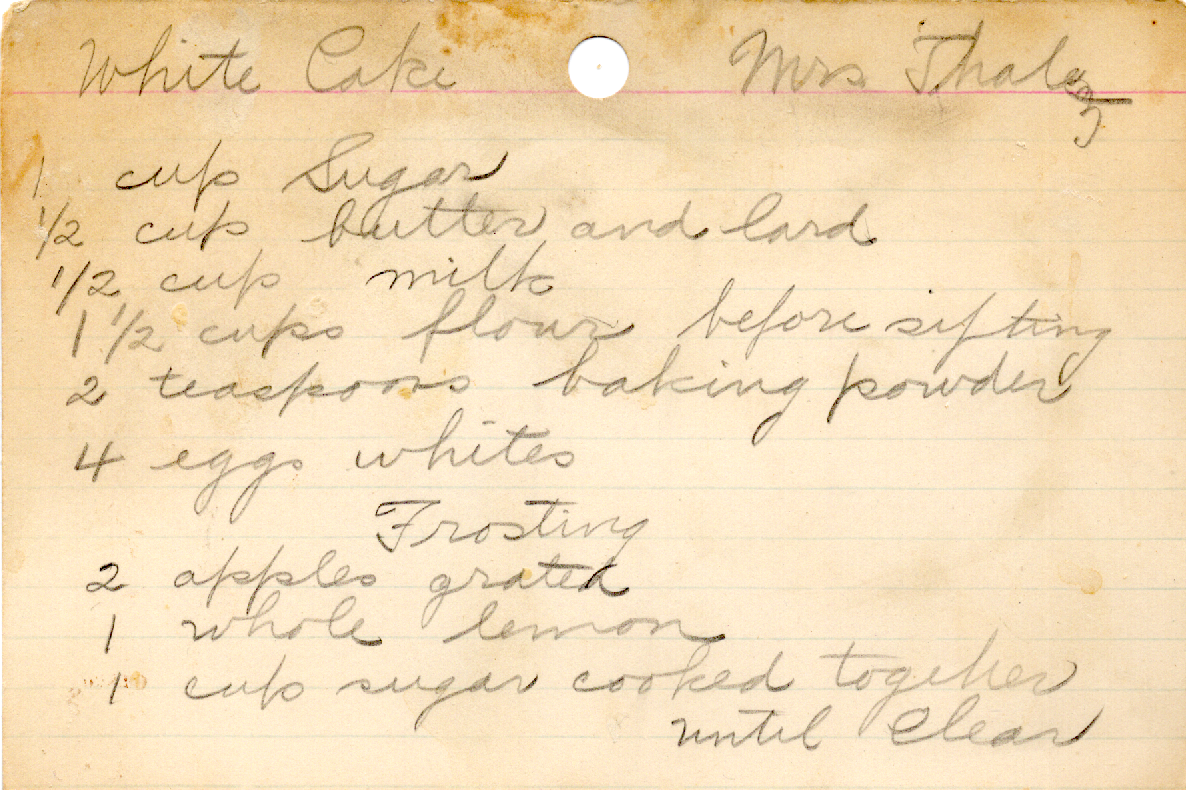 White Cake Mrs
1 cup Sugar
1/2 cup butter and lard
1/2 cup milk
1 1/2 cups flour before sifting
2 teaspoons baking powder
4 eggs whites
Frosting
2 apples grated
1 whole lemon
1 cup sugar cooked together
until clear